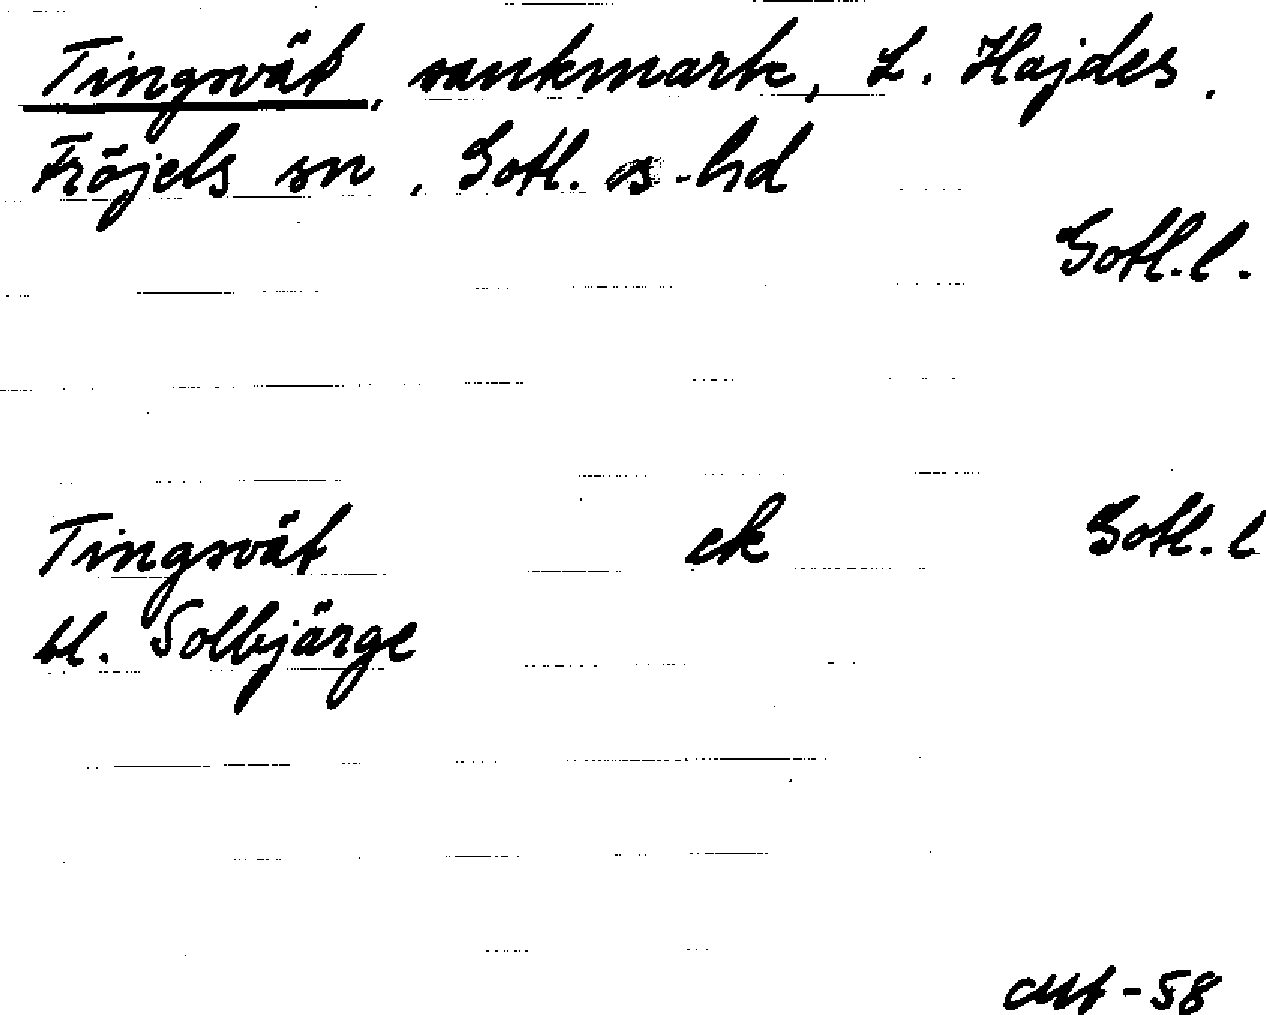 Tingsvät, sankmark, L. Hajdes,
Fröjels sn, Gotl. s-hd
Gotl.l.
Tingsvät ek Gotl.l
bl. Solbjärge
-58